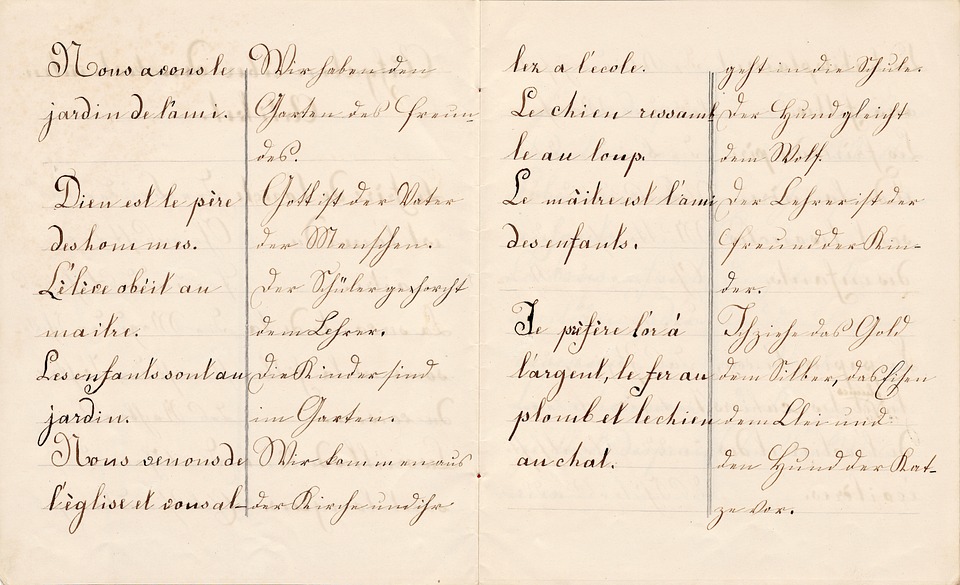 Nous avons le
jardin de l'ami.
Dieu est le père
des hommes.
L'élève obéit au
maitre.
Les enfants sont au
jardin.
Nous venons de
l'église et vous al-
Wir haben den
Garten des Freun-
des.
Gott ist der Vater
der Menschen.
Der Schüler gehorcht
dem Lehrer.
Die Kinder sind
im Garten.
Wir kommen aus
der Kirche und ihr
lez a l'ecole.
Le chien ressamb
le au loup.
Le maître est l'ami
des enfants.
Je préfère l'or à
l'argent, le fer au
plomb et le chien
au chat.
geht in die Schule.
Der Hund gleicht
dem Wolf.
Der Lehrer ist der
Freund der Kin-
der.
Ich ziehe das Gold
dem Silber, das Eisen
dem Blei und
den Hund der Kat-
ze vor.